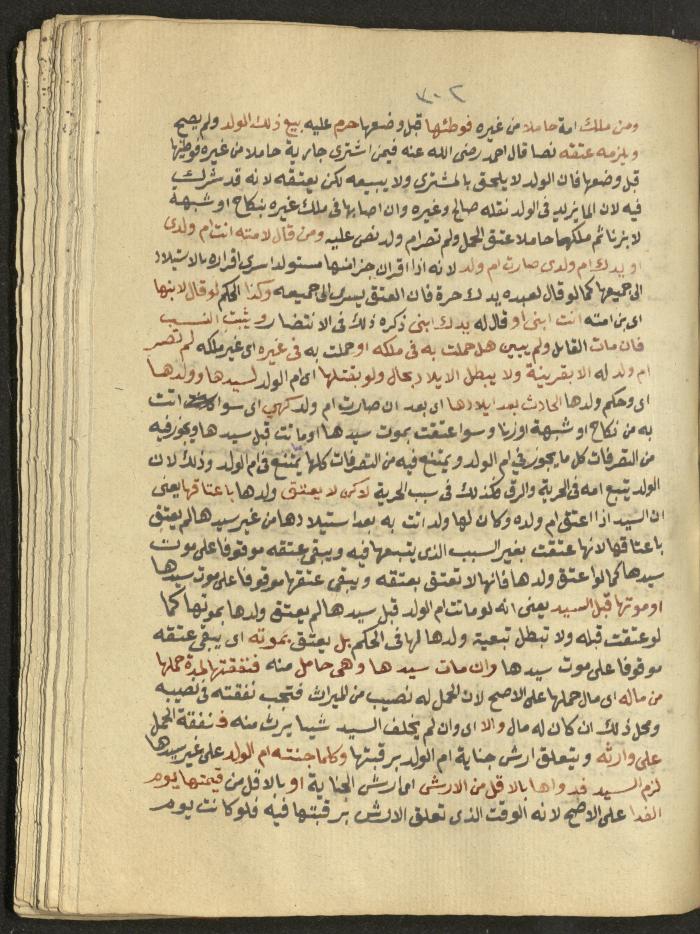 ٣٠٢
ومن ملك امة حاملا من غيره فوطئها قبل وضعها حرم عليه بيع ذلك الولد ولم يصح
ويلزمه عتقه نصا قال احمد رضى الله عنه فيمن اشترى جارية حاملا من غيره فوطئها
قبل وضعها فان الولد لا يلحق بالمشترى ولا يبيعه لكن يعتقه لانه قد شرك
فيه لان الما يزيد فى الولد نقله صالح وغيره وان اصابها فى ملك غيره بنكاح او شبهة
لا بزنا ثم ملكها حاملا عتق الحمل ولم تصر ام ولد نص عليه ومن قال لامته انت ام ولدى
او يدك ام ولدى صارت ام ولد لانه اذا اقر ان جزا منها مستولدا سرى اقراره بالاستيلاد
الى جميعها كما لو قال لعبده يدك حرة فان العتق يسرى الى جميعه وكذا الحكم لو قال لابنها
اى بن امته انت ابنى او قال له يدك ابنى ذكره ذلك فى الانتصار ويثبت النسب
فان مات القايل ولم يبين هل حملت به فى ملكه او حملت به فى غيره اى غير ملكه لم تصر
ام ولد له الا بقرينة ولا يبطل الايلاد بحال ولو بقتلها اى ام الولد لسيدها وولدها
اى وحكم ولدها الحادث بعد ايلادها اى بعد ان صارت ام ولد كهي اى سوا اتت
به من نكاح او شبهة او زنا وسوا عتقت بموت سيدها او ماتت قبل سيدها ويجوز فيه
من التصرفات كل ما يجوز فى ام الولد ويمتنع فيه من التصرفات كلها يمتنع فى ام الولد وذلك لان
الولد يتبع امه فى الحرية والرق فكذلك فى سبب الحرية لكن لا يعتق ولدها باعتاقها يعنى
ان السيد اذا اعتق ام ولده وكان لها ولد اتت به بعد استيلادها من غير سيدها لم يعتق
باعتاقها لانها عتقت بغير السبب الذى يتبعها فيه ويبقى عتقه موقوفا على موت
سيدها كما لو اعتق ولدها فانها لا تعتق بعتقه ويبقى عتقها موقوفا على موت سيدها
او موتها قبل السيد يعنى انه لو ماتت ام الولد قبل سيدها لم يعتق ولدها بموتها كما
لو عتقت قبله ولا تبطل تبعية ولدها لها فى الحكم بل يعتق بموته اى يبقى عتقه
موقوفا على موت سيدها وان مات سيدها وهى حامل منه فنفقتها لمدة حملها
من ماله اى مال حملها على الاصح لان للحمل له نصيب من الميراث فتجب نفقته فى نصيبه
ومحل ذلك ان كان له مال والا اى وان لم يخلف السيد شيا يرث منه فنفقة الحمل
على وارثه ويتعلق ارش جناية ام الولد برقبتها وكلما جنته ام الولد على غير سيدها
لزم السيد فدواها بالاقل من الارش اى ارش الجناية او بالاقل من قيمتها يوم
الفدا على الاصح لانه الوقت الذى تعلق الارش برقبتها فيه فلو كانت يوم